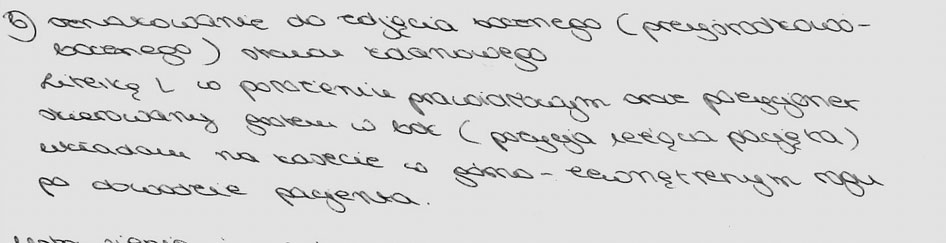 6) oznakowanie do zdjęcia bocznego (przyśrodkowo-
bocznego) stawu kolanowego
Literkę L w położeniu prawidłowym oraz pozycjoner
skierowany grotem w bok (pozycja leżąca pacjenta)
układam na kasecie w górno-zewnętrznym rogu
po obwodzie pacjenta.